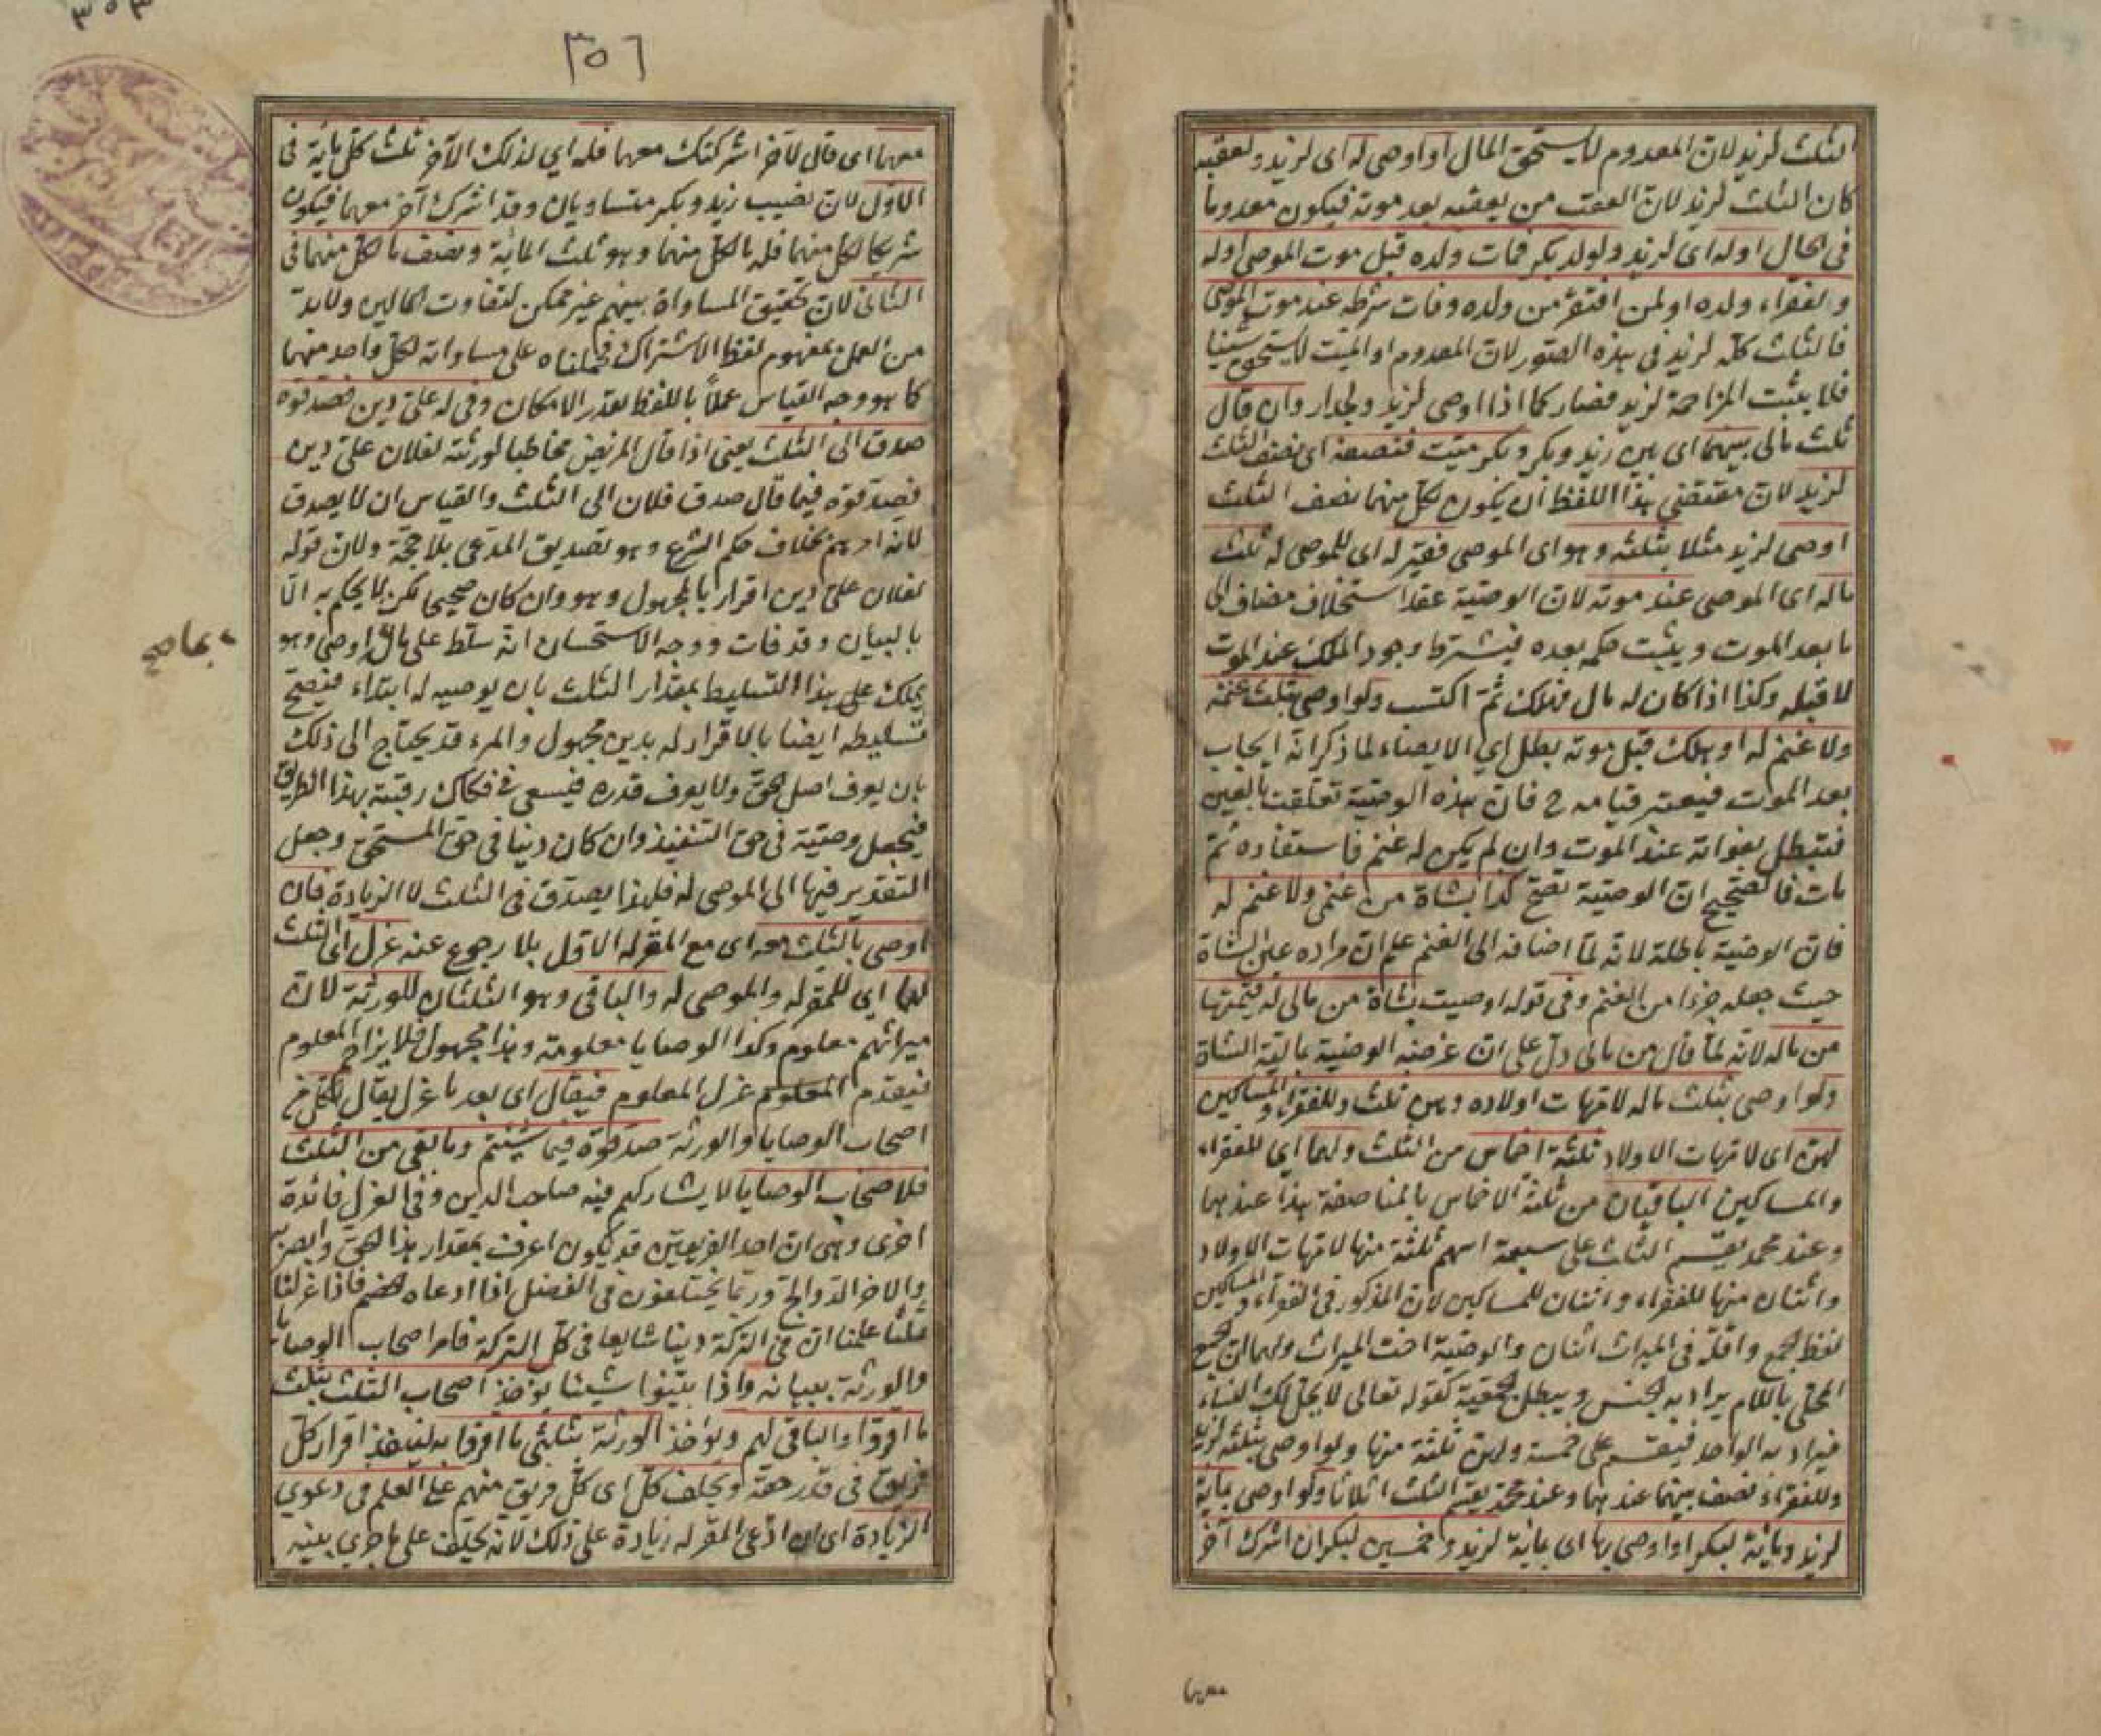 الثلث لزيد لان المعدوم لا يستحق المال او اوصى له اى لزيد ولعقبه
كان الثلث لزيد لان العقب من يعقبه بعد موته فيكون معدوما
فى الحال اوله اى لزيد ولولد بكر فمات ولده قبل موت الموصى اوله
ولفقراء ولده او لمن افتقر من ولده وفات شرطه عند موت الموصى
فالثلث كله لزيد فى هذه الصور لان المعدوم او الميت لا يستحق شيئا
فلا يثبت المزاحمة لزيد فصار كما اذا اوصى لزيد ولجدار وان قال
ثلث مالى بينهما اى بين زيد وبكر وبكر ميت فنصفه اى نصف الثلث
لزيد لان مقتضى هذا اللفظ ان يكون لكل منهما نصف الثلث
اوصى لزيد مثلا بثلثه وهو اى الموصى فقير له اى للموصى له ثلث
ماله اى الموصى عند موته لان الوصية عقد استخلاف مضاف الى
ما بعد الموت ويثبت حكمه بعده فيشترط وجود الملك عند الموت
لا قبله وكذا اذا كان له مال فهلك ثم اكتسب ولو اوصى بثلث غنمه
ولا غنم له او هلك قبل موته بطل اي الايصاء لما ذكر انه ايجاب
بعد الموت فيعتبر قيامه ح فان هذه الوصية تعلقت بالعين
فتبطل بفواته عند الموت وان لم يكن له غنم فاستفاده ثم
مات فالصحيح ان الوصية تصح كذا بشاة من غنمى ولا غنم له
فان الوصية باطلة لانه لما اضافه الى الغنم علم ان مراده عين الشاة
حيث جعله جزءا من الغنم وفى قوله اوصيت بشاة من مالى له قيمتها
من ماله لانه لما قال من مالى دل على ان غرضه الوصية بمالية الشاة
ولو اوصى بثلث ماله لامهات اولاده وهن ثلث وللفقراء والمساكين
لهن اى لامهات الاولاد ثلثة اخماس من الثلث ولهما اي للفقراء
والمساكين الباقيان من ثلثة الاخماس بالمناصفة هذا عندهما
وعند محمد يقسم الثلث على سبعة اسهم ثلثة منها لامهات الاولاد
واثنان منها للفقراء واثنان للمساكين لان المذكور فى الفقراء والمساكين
لفظ الجمع واقله فى الميراث اثنان والوصية اخت الميراث ولهما ان الجمع
المحلى باللام يراد به الجنس ويبطل الجمعية كقوله تعالى لا يحل لك النساء
فيراد به الواحد فيقسم على خمسة ولهن ثلثة منها ولو اوصى بثلثه لزيد
وللفقراء نصف بينهما عندهما وعند محمد يقسم الثلث اثلاثا ولو اوصى بماية
لزيد وماية لبكر او اوصى بها اى بماية لزيد وخمسين لبكر ان اشرك آخر
معهما
٣٥٦
معهما اى قال لآخر اشركتك معهما فله اي لذلك الآخر ثلث كل ماية فى
الاول لان نصيب زيد وبكر متساويان وقد اشرك آخر معهما فيكون
شريكا لكل منهما فله ما لكل منهما وهو ثلث الماية ونصف ما لكل منهما فى
الثانى لان تحقيق المساواة بينهم غير ممكن لتفاوت المالين ولا بد
من العمل بمفهوم لفظ الاشتراك فحملناه على مساواته لكل واحد منهما
كما هو وجه القياس عملا باللفظ بقدر الامكان وفى له على دين فصدقوه
صدق الى الثلث يعنى اذا قال المريض مخاطبا لورثته لفلان على دين
فصدقوه فيما قال صدق فلان الى الثلث والقياس ان لا يصدق
لانه امرهم بخلاف حكم الشرع وهو تصديق المدعى بلا حجة ولان قوله
لفلان على دين اقرار بالمجهول وهو وان كان صحيحا لكن لا يحكم به الا
بالبيان وقد فات ووجه الاستحسان انه سلط على مال اوصى وهو
بما صح
يملك على هذا التسليط بمقدار الثلث بان يوصيه له ابتداء فيصح
تسليطه ايضا بالاقرار له بدين مجهول والمرء قد يحتاج الى ذلك
بان يعرف اصل الحق ولا يعرف قدره فيسعى فى فكاك رقبته بهذا الطريق
فيجعل وصية فى حق التنفيذ وان كان دينا فى حق المستحق وجعل
التقدير فيها الى الموصى له فلهذا يصدق فى الثلث لا الزيادة فان
اوصى بالثلث معه اى مع المقر له الاول بلا رجوع عنه عزل اى الثلث
لهما اي للمقر له والموصى له والباقى وهو الثلثان للورثة لان
ميراثهم معلوم وكذا الوصايا معلومة وهذا مجهول فلا يزاحم المعلوم
فيقدم المعلوم عزل المعلوم فيقال اى بعد ما عزل يقال لكل من
اصحاب الوصايا والورثة صدقوه فيما شيئتم وما بقى من الثلث
فلاصحاب الوصايا لا يشاركهم فيه صاحب الدين وفى العزل فائدة
اخرى وهى ان احد الفريقين قد يكون اعرف بمقدار هذا الحق وابصر به
والاخر الد والج وربما يختلفون فى الفضل اذا ادعاه الخصم فاذا عزلنا
ثلثا علمنا ان فى التركة دينا شايعا فى كل التركة فامر اصحاب الوصايا
والورثة ببيانه واذا بينوا شيئا يؤخذ اصحاب الثلث بثلث
ما اقروا والباقى لهم ويؤخذ الورثة بثلثى ما اقروا به لينفذ اقرار كل
فريق فى قدر حقه ويحلف كل اى كل فريق منهم على العلم فى دعوي
الزيادة اى ان ادعى المقر له زيادة على ذلك لانه يحلف على ما جرى بينه